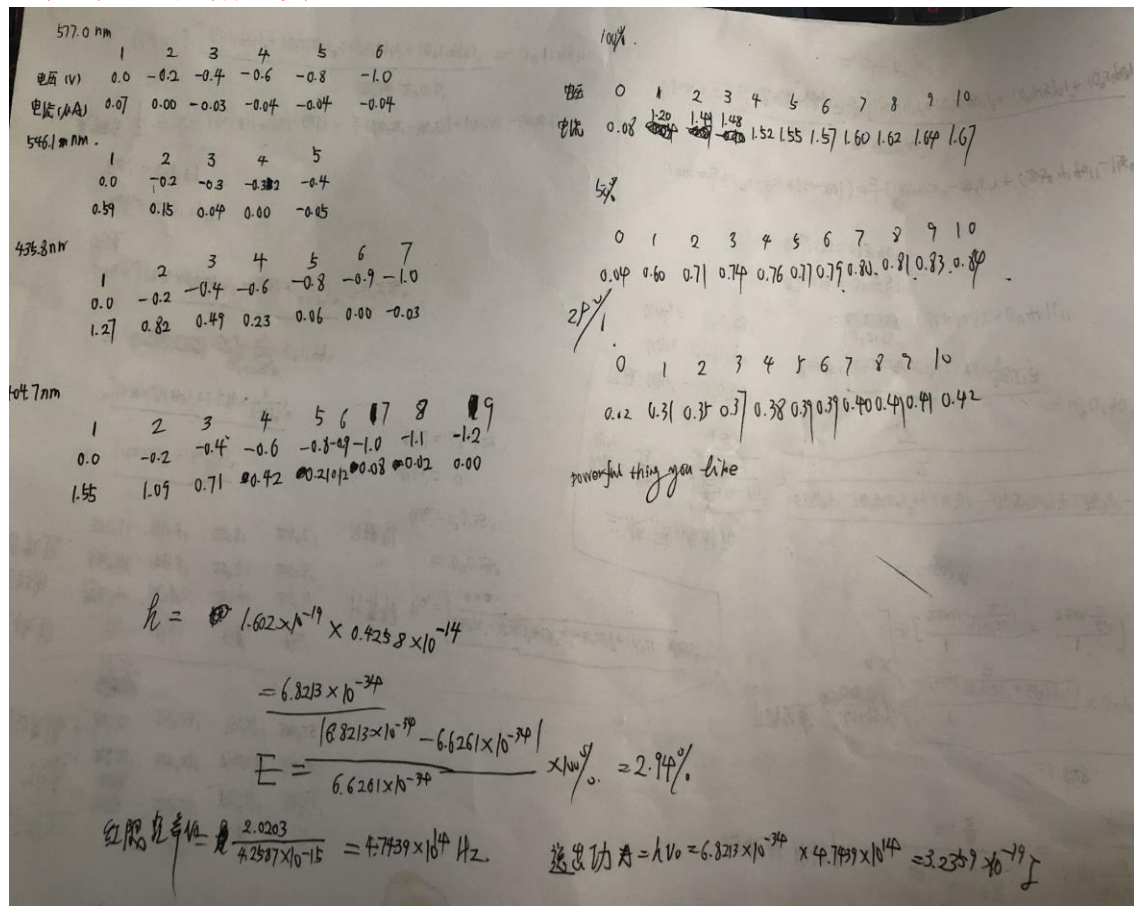 577.0 nm
1 2 3 4 5 6
电压 (V) 0.0 -0.2 -0.4 -0.6 -0.8 -1.0
电流 (μA) 0.07 0.00 -0.03 -0.04 -0.04 -0.04
546.1 nm.
1 2 3 4 5
0.0 -0.2 -0.3 -0.32 -0.4
0.59 0.15 0.04 0.00 -0.05
435.8nm
1 2 3 4 5 6 7
0.0 -0.2 -0.4 -0.6 -0.8 -0.9 -1.0
1.27 0.82 0.49 0.23 0.06 0.00 -0.03
404.7nm
1 2 3 4 5 6 7 8 9
0.0 -0.2 -0.4 -0.6 -0.8 -0.9 -1.0 -1.1 -1.2
1.55 1.09 0.71 0.42 0.21 0.12 0.08 0.02 0.00
100%.
电压 0 1 2 3 4 5 6 7 8 9 10
电流 0.08 1.20 1.41 1.48 1.52 1.55 1.57 1.60 1.62 1.64 1.67
50%
0 1 2 3 4 5 6 7 8 9 10
0.04 0.60 0.71 0.74 0.76 0.77 0.79 0.80 0.81 0.83 0.84
0 1 2 3 4 5 6 7 8 9 10
0.02 0.31 0.35 0.37 0.38 0.39 0.39 0.40 0.41 0.41 0.42
powerful thing you like
h = 1.602×10⁻¹⁹ × 0.4258×10⁻¹⁴
= 6.8213×10⁻³⁴
E = |6.8213×10⁻³⁴ - 6.6261×10⁻³⁴| / 6.6261×10⁻³⁴ ×100% = 2.94%
红限频率ν₀ = 2.0203 / 4.2587×10⁻¹⁵ = 4.7439×10¹⁴ Hz.
逸出功 A = hν₀ = 6.8213×10⁻³⁴ × 4.7439×10¹⁴ = 3.2359×10⁻¹⁹ J